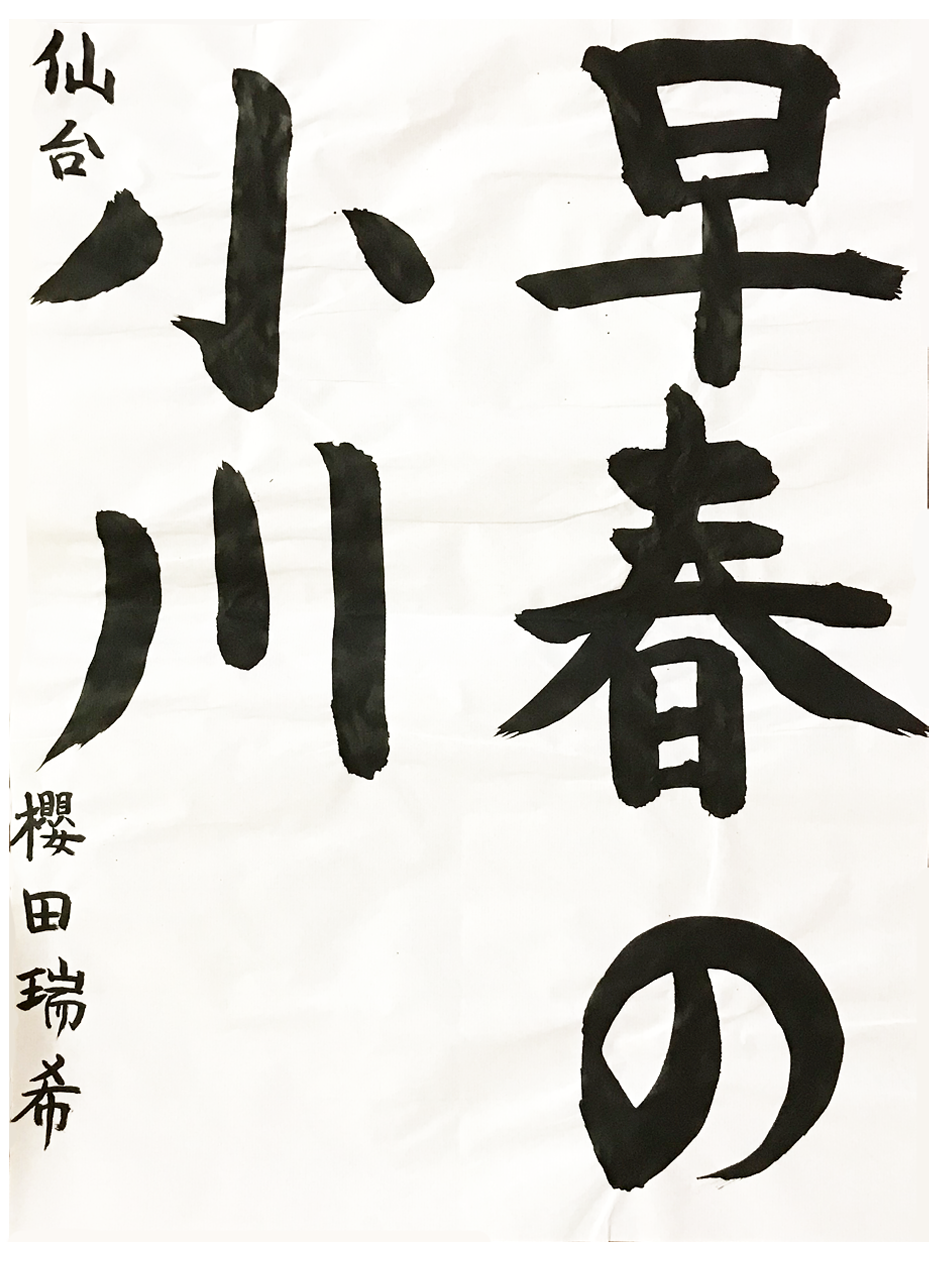 早春の
小川
仙台
櫻田瑞希